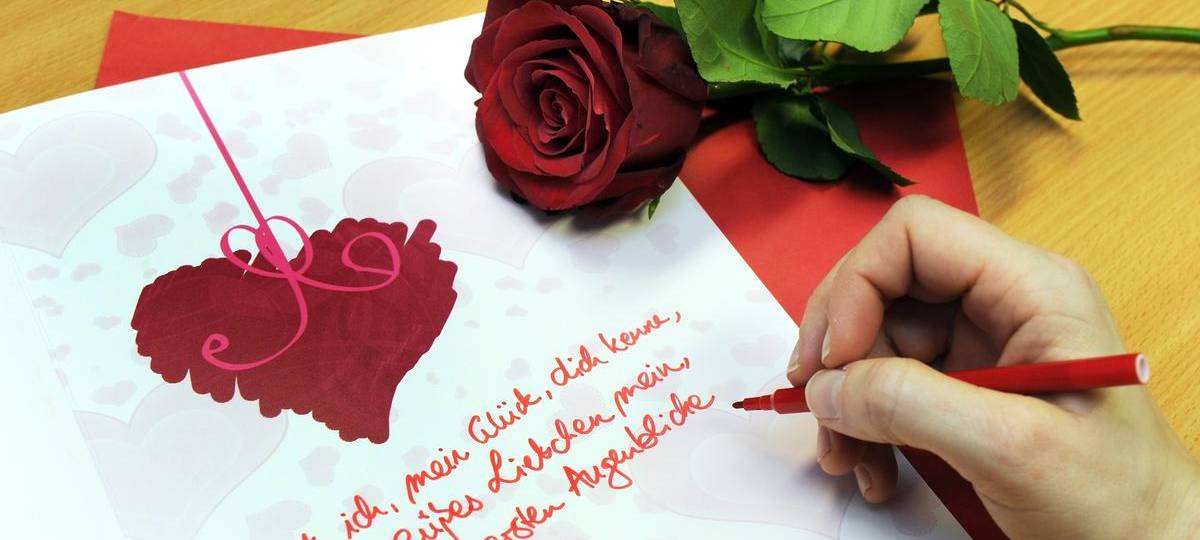 ich, mein Glück, dich kenne,
süßes Liebchen mein,
ersten Augenblicke